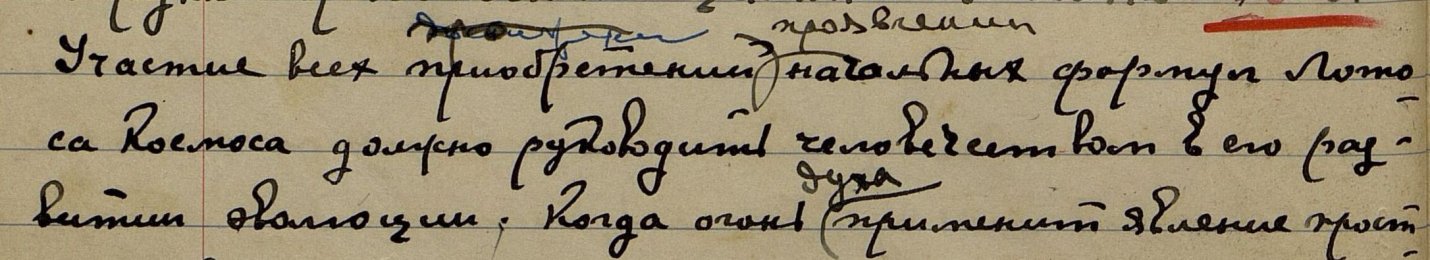 проявлении
Участие всех приобретений начальных формул Лото
са Космоса должно руководить человечеством в его раз-
духа
витии эволюции. Когда огонь применит явление прост